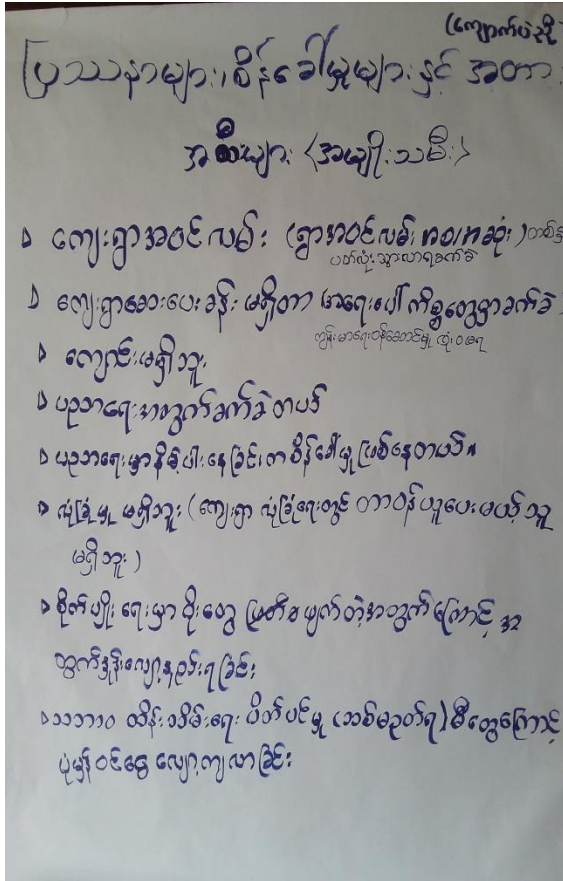 (ကျောက်ပဲညို
ပြဿနာများ၊စိန်ခေါ်မှုများနှင့် အတား
အဆီးများ <အမျိုးသမီး>
ကျေးရွာအဝင်လမ်း (ရွာအဝင်လမ်း၊ အဝ၊အဆုံး)
ပတ်လုံးသွားလာရခက်ခဲ
ကျေးရွာဆေးပေးခန်း မရှိတာ အရေးပေါ်ကိစ္စတွေမှာခက်ခဲ
ကျန်းမာရေးဝန်ဆောင်မှု လုံးဝမရ
ကျောင်းမရှိဘူး
ပညာရေးအတွက်ခက်ခဲတယ်
ပညာရေးမှာနိမ့်ပါးနေခြင်း၊ကစိန်ခေါ်မှုဖြစ်နေတယ်။
လုံခြုံမှု မရှိဘူး (ကျေးရွာ လုံခြုံရေးတွင် တာဝန်ယူပေးမယ့်သူ
မရှိဘူး)
စိုက်ပျိုးရေးမှာ ပိုးတွေ ဖြတ်စဖျက်တဲ့အတွက်ကြောင့် အ
ထွက်နှုန်းလျော့နည်းရခြင်း
သဘာဝ ထိန်းသိမ်းရေး ပိတ်ပင်မှု (သစ်မဉတ်ရ) မီတွေကြောင့်
ပုံမှန်ဝင်ငွေ လျော့ကျလာခြင်း